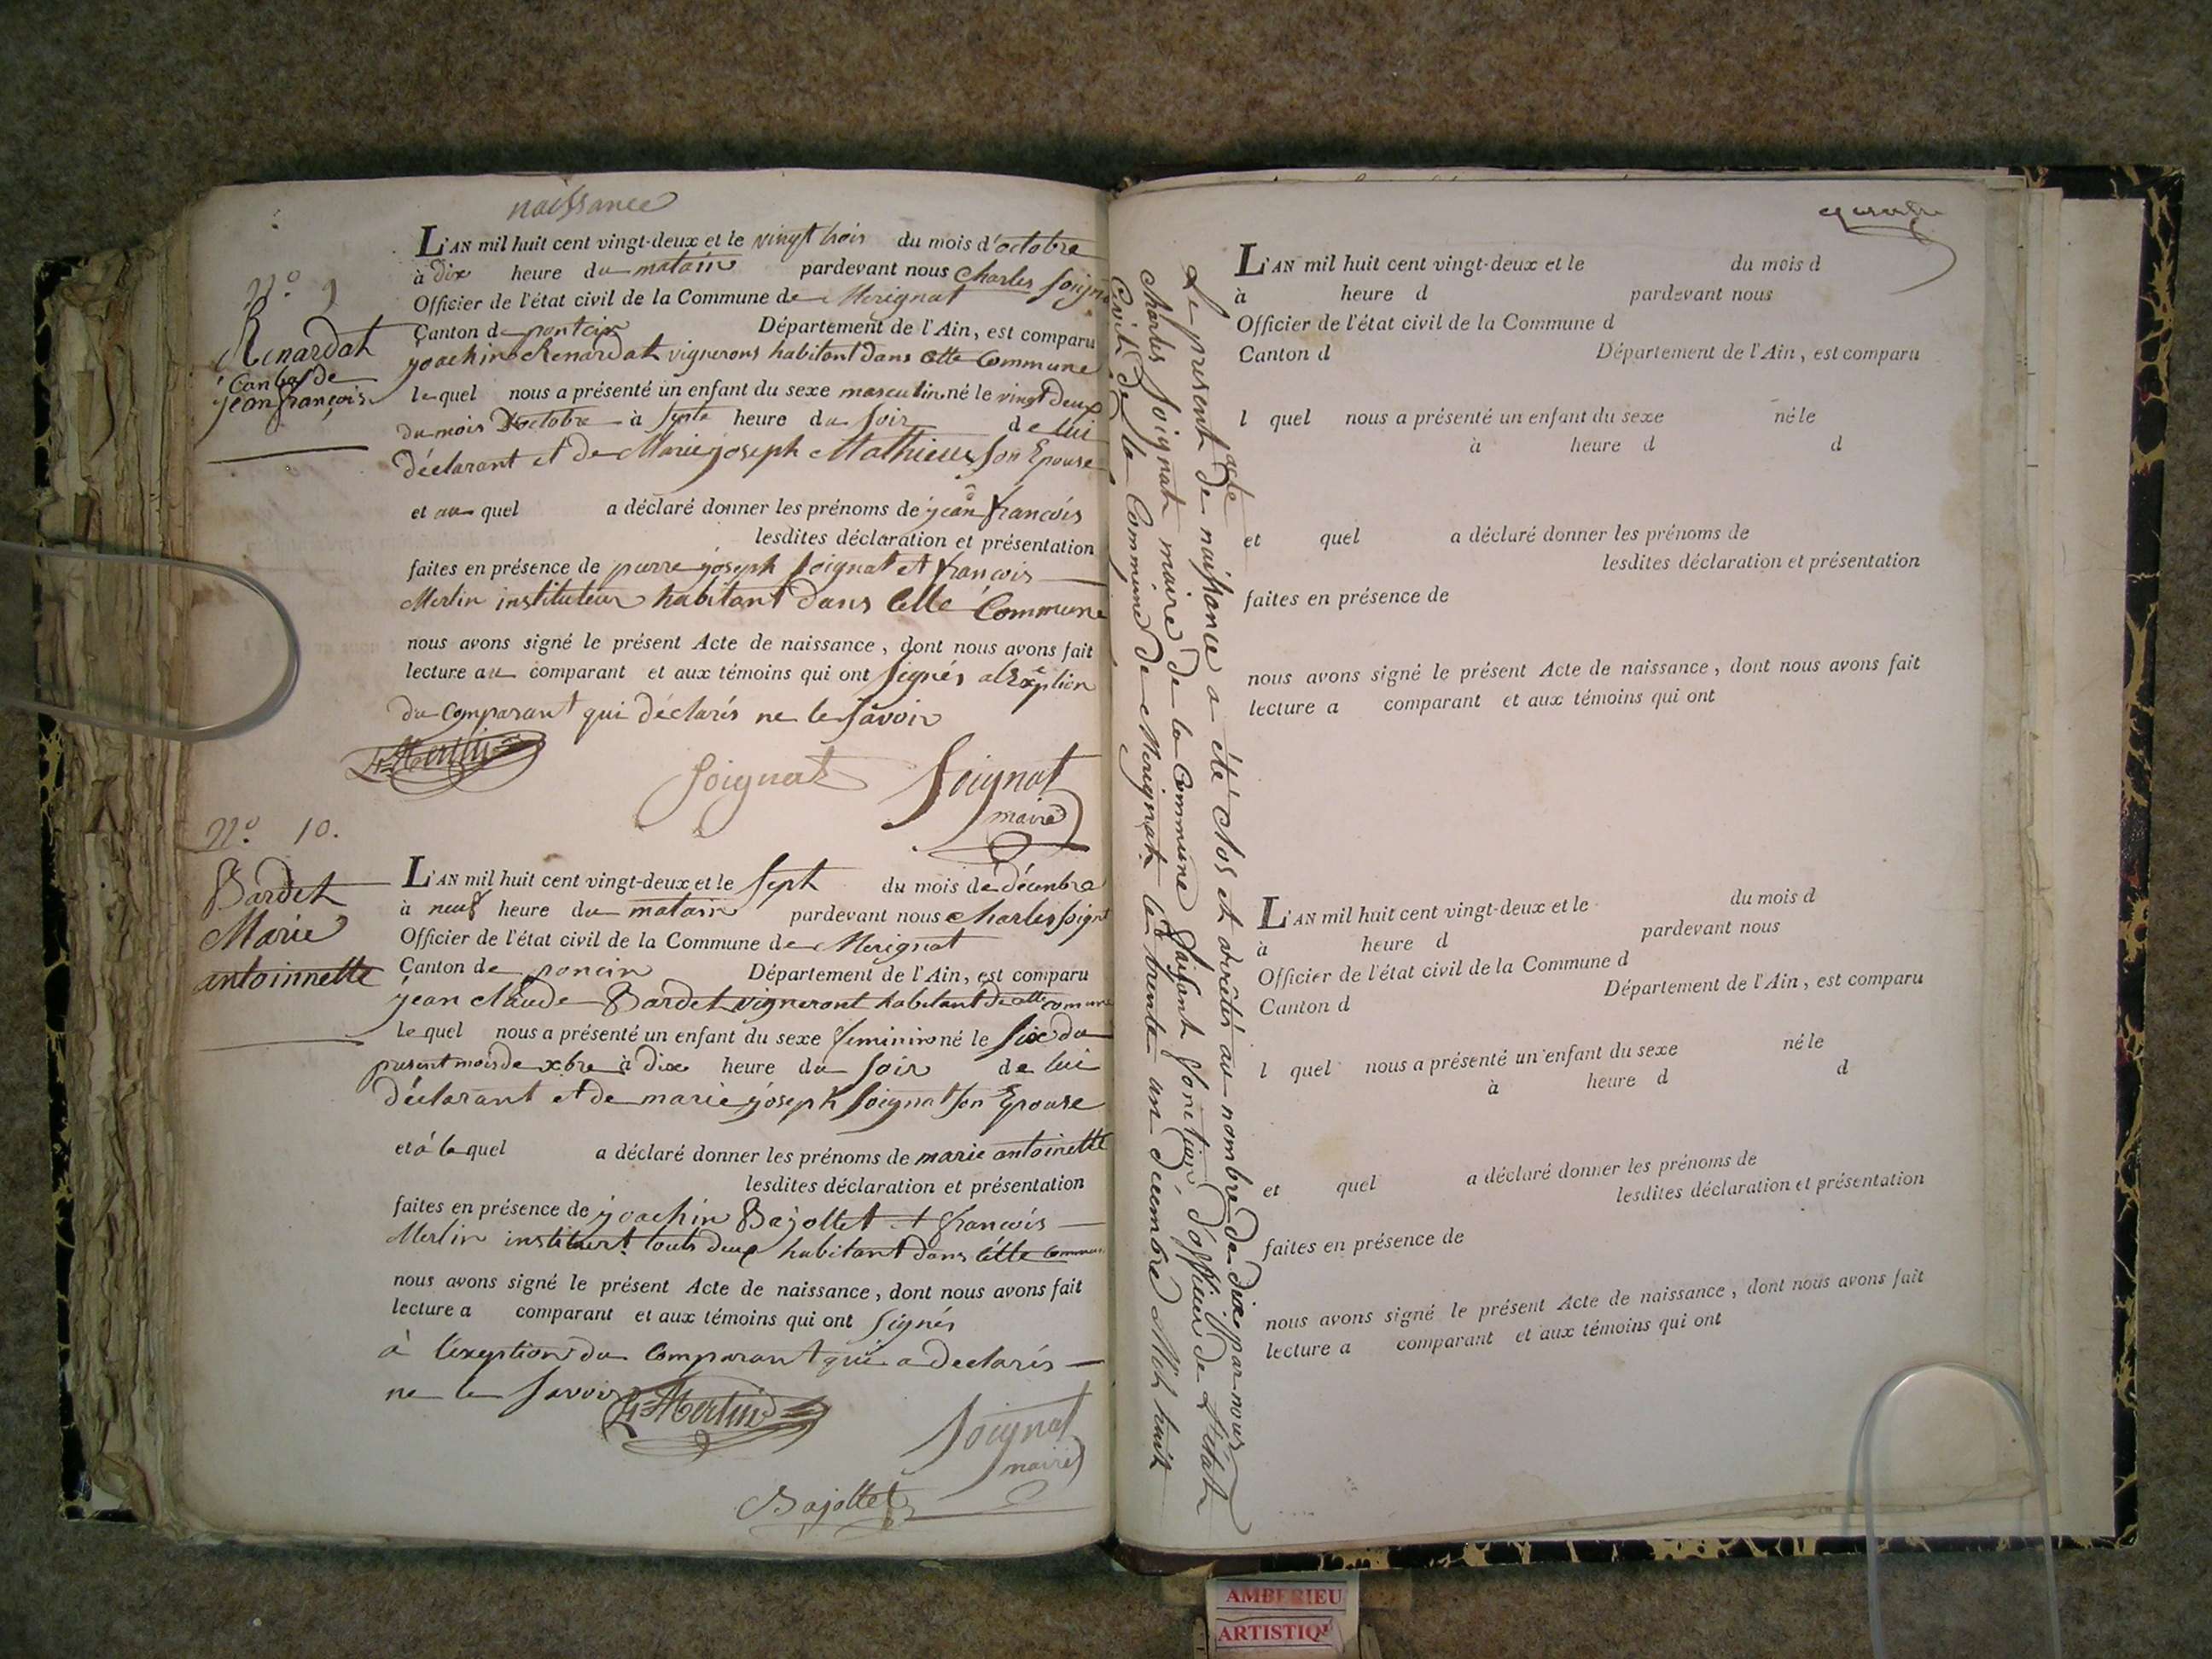 naissance
L'AN mil huit cent vingt-deux et le vingt trois du mois d'octobre
à dix heure du matain pardevant nous Charles Soigna
Officier de l'état civil de la Commune de Merignat
Canton de pontcin Département de l'Ain, est comparu
yoachin Renardat vignerons habitant dans cette Commune
le quel nous a présenté un enfant du sexe masculin né le vingt deux
du mois D'octobre à septe heure du soir de lui
déclarant et de Marie joseph Mathieux son Epouse
et au quel a déclaré donner les prénoms de jean françois
lesdites déclaration et présentation
faites en présence de pierre joseph Soignat et françois
Merlin instituteur habitant dans cette Commune
nous avons signé le présent Acte de naissance, dont nous avons fait
lecture au comparant et aux témoins qui ont signés
du Comparant qui déclarés ne le savoir
f. Merlin
Soignat
Soignat
maire
N° 9
Renardat
jean françois
N° 10.
Bardet
Marie
antoinnette
L'AN mil huit cent vingt-deux et le sept du mois de décembre
à neuf heure du matain pardevant nous Charles Soignt
Officier de l'état civil de la Commune de Merignat
Canton de poncin Département de l'Ain, est comparu
jean claude Bardet vigneront habitant de cette comune
le quel nous a présenté un enfant du sexe feminin né le six du
present mois de xbre à dix heure du soir de lui
déclarant et de marie joseph Soignat son Epouse
et à la quel a déclaré donner les prénoms de marie antoinette
lesdites déclaration et présentation
faites en présence de yoachin Bajollet et françois
Merlin touts deux habitant dans cette Commune
nous avons signé le présent Acte de naissance, dont nous avons fait
lecture a comparant et aux témoins qui ont signés
à l'exeption du Comparant qui a declarés
ne le savoir
f. Merlin
Soignat
maire
Bajollet
Le present acte de naissance a été clos et arretés au nombre de dix par nous
Charles Soignat maire de la Commune faisant fonction d'officier de L'etat
Civil de la Commune de Merignat le trente un décembre Mil huit
L'AN mil huit cent vingt-deux et le du mois d
à heure d pardevant nous
Officier de l'état civil de la Commune d
Canton d Département de l'Ain, est comparu
l quel nous a présenté un enfant du sexe né le
à heure d d
et quel a déclaré donner les prénoms de
lesdites déclaration et présentation
faites en présence de
nous avons signé le présent Acte de naissance, dont nous avons fait
lecture a comparant et aux témoins qui ont
L'AN mil huit cent vingt-deux et le du mois d
à heure d pardevant nous
Officier de l'état civil de la Commune d
Canton d Département de l'Ain, est comparu
l quel nous a présenté un enfant du sexe né le
à heure d d
et quel a déclaré donner les prénoms de
lesdites déclaration et présentation
faites en présence de
nous avons signé le présent Acte de naissance, dont nous avons fait
lecture a comparant et aux témoins qui ont
AMBERIEU
ARTISTIQU